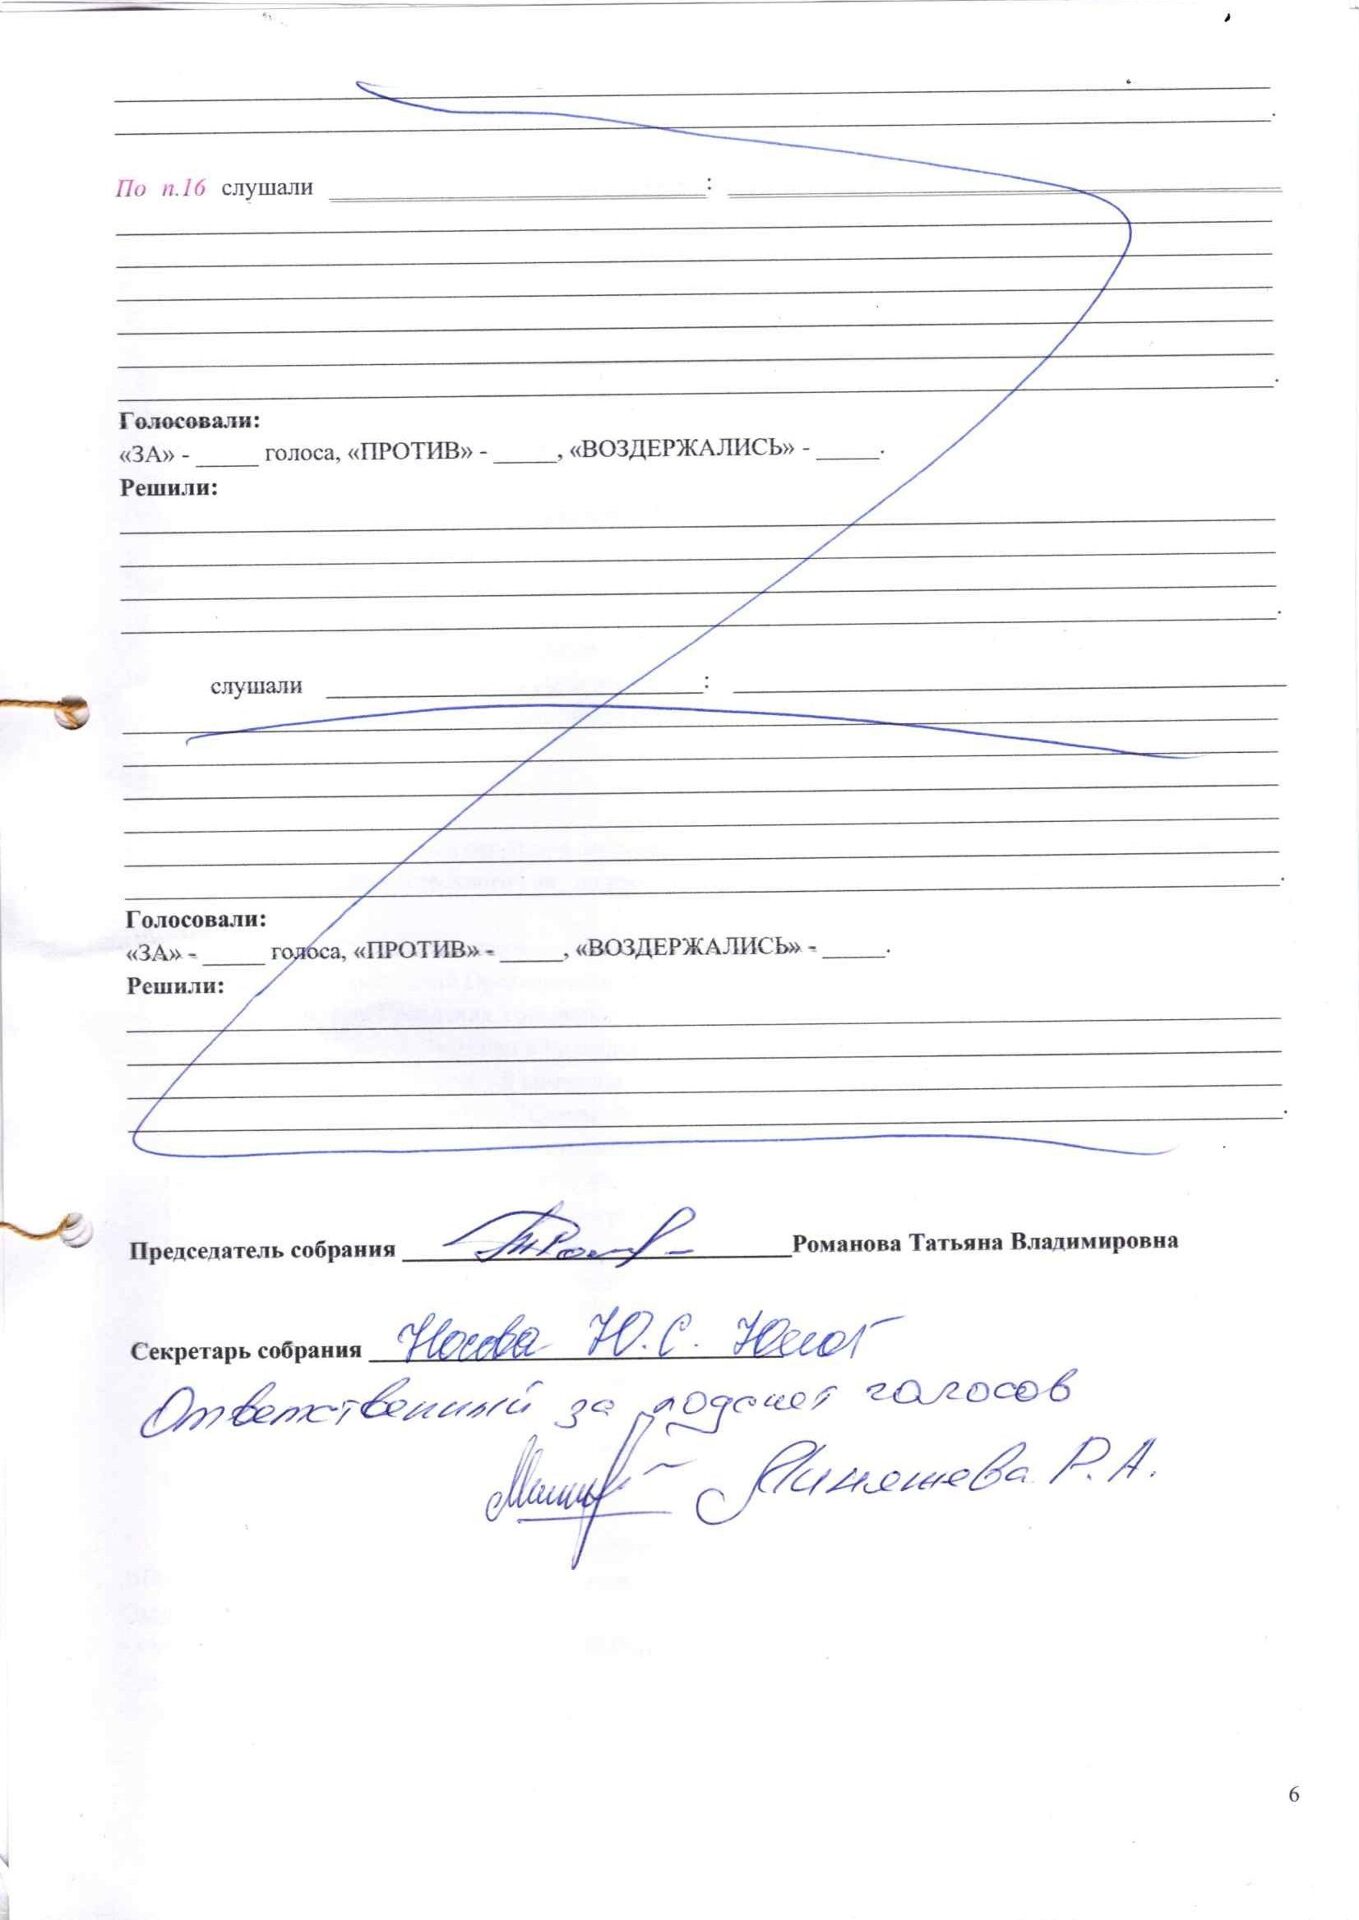 По п.16 слушали ______________________________: ____________________________________________
Голосовали:
«ЗА» - _____ голоса, «ПРОТИВ» - _____, «ВОЗДЕРЖАЛИСЬ» - _____.
Решили:
слушали ______________________________: ____________________________________________
Голосовали:
«ЗА» - _____ голоса, «ПРОТИВ» - _____, «ВОЗДЕРЖАЛИСЬ» - _____.
Решили:
Председатель собрания ______________________________Романова Татьяна Владимировна
Секретарь собрания Носова Ю.С.
Ответственный за подсчет голосов
Миняшева Р.А.
6